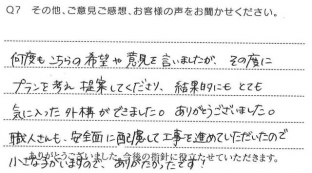 Q7 その他、ご意見ご感想、お客様の声をお聞かせください。
何度もこちらの希望や意見を言いましたが、その度に
プランを考え提案してくださり、結果的にもとても
気に入った外構ができました。ありがとうございました。
職人さんも、安全面に配慮して工事を進めていただいたので
小さな子がいますので、ありがたかったです!
ありがとうございました。今後の指針に役立たせていただきます。